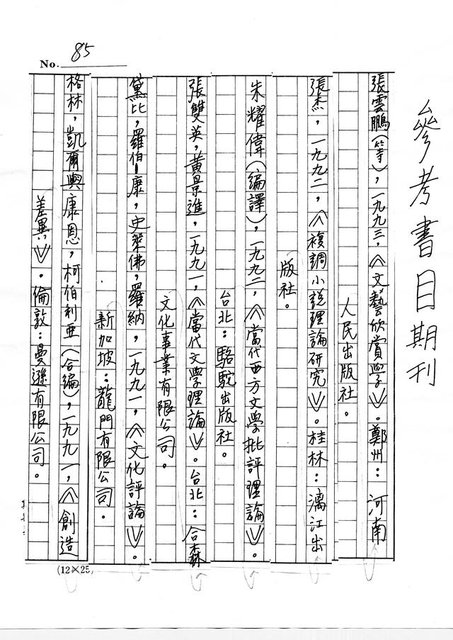 No. 85
參考書目期刊
張雲鵬(等),一九九三,《文藝欣賞學》。鄭州:河南
人民出版社。
張杰,一九九二,《複調小說理論研究》。桂林:漓江出
版社。
朱耀偉(編譯),一九九二,《當代西方文學批評理論》。
台北:駱駝出版社。
張雙英,黃景進,一九九一,《當代文學理論》。台北:合森
文化事業有限公司。
黛比,羅伯康,史萊佛,羅納,一九九一,《文化評論》。
新加坡:龍門有限公司。
格林,凱爾與康恩,柯伯利亞(合編),一九九一,《創造
差異》。倫敦:曼遜有限公司。
(12×25)